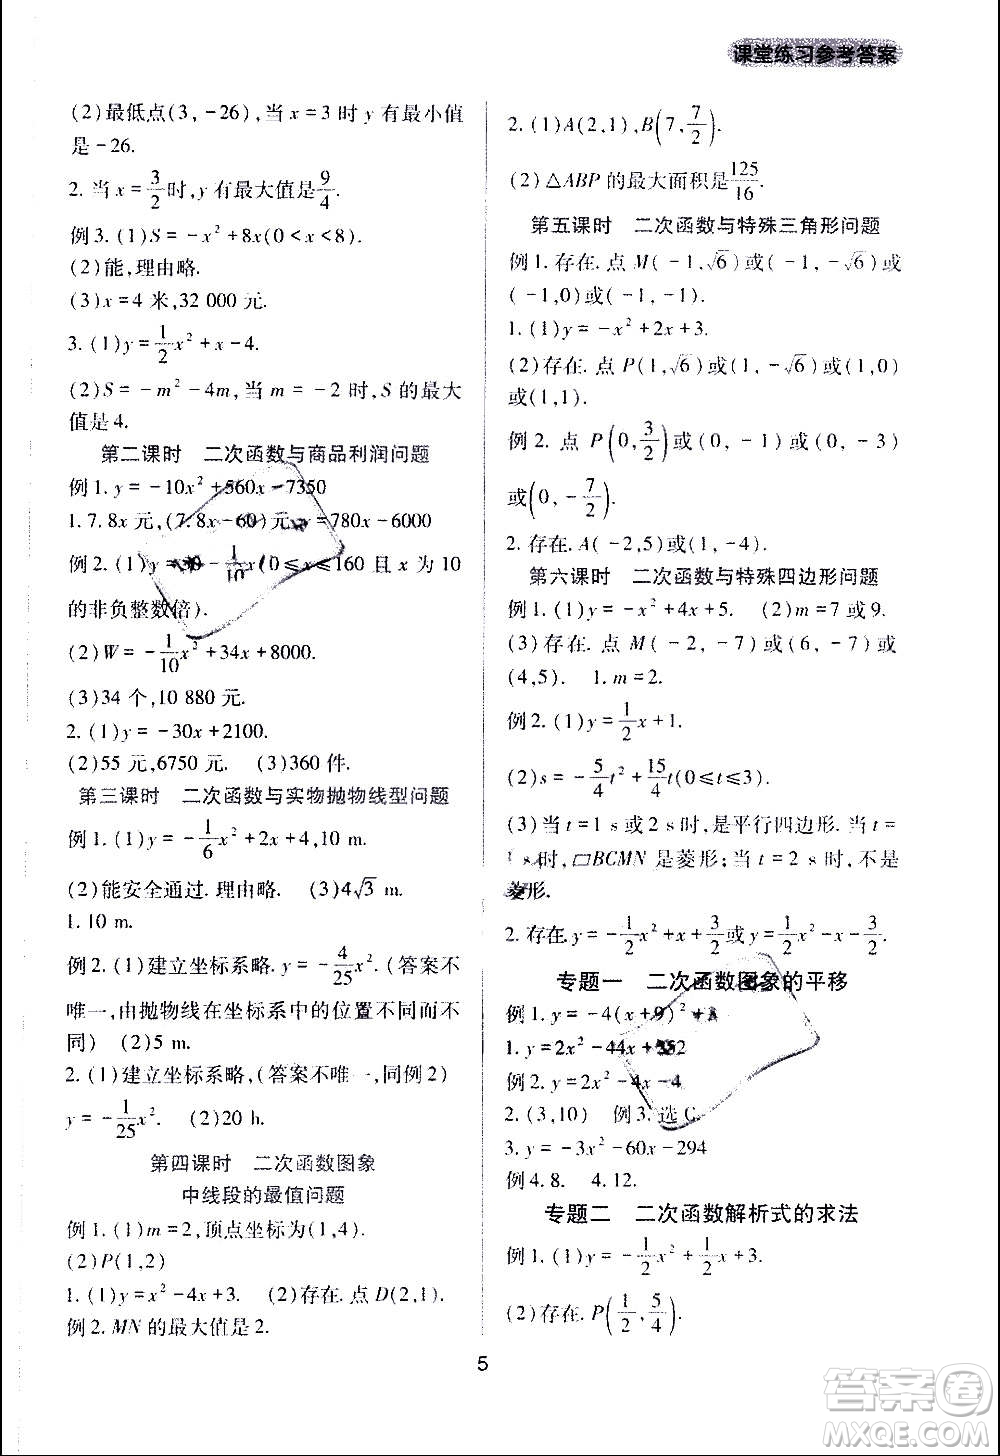 课堂练习参考答案
(2)最低点(3,-26),当 x=3时 y 有最小值
是-26.
2. 当 x=3/2时,y 有最大值是9/4.
例3. (1)S=-x²+8x(0<x<8).
(2)能,理由略.
(3)x=4米,32 000元.
3. (1)y=1/2x²+x-4.
(2)S=-m²-4m,当 m=-2时,S的最大
值是4.
第二课时 二次函数与商品利润问题
例1. y=-10x²+560x-7350
1. 7.8x元,(7.8x-60)元,y=780x-6000
例2. (1) -1/10x(0≤x≤160且x为10
的非负整数倍).
(2)W=-1/10x²+34x+8000.
(3)34个,10 880元.
2. (1)y=-30x+2100.
(2)55元,6750元. (3)360件.
第三课时 二次函数与实物抛物线型问题
例1. (1)y=-1/6x²+2x+4,10 m.
(2)能安全通过.理由略. (3)4√3 m.
1. 10 m.
例2. (1)建立坐标系略. y=-4/25x². (答案不
唯一,由抛物线在坐标系中的位置不同而
不同) (2)5 m.
2. (1)建立坐标系略,(答案不唯一,同例2)
y=-1/25x². (2)20 h.
第四课时 二次函数图象
中线段的最值问题
例1. (1)m=2,顶点坐标为(1,4).
(2)P(1,2)
1. (1)y=x²-4x+3. (2)存在.点 D(2,1).
例2. MN的最大值是2.
2. (1)A(2,1),B(7,7/2).
(2)△ABP的最大面积是125/16.
第五课时 二次函数与特殊三角形问题
例1. 存在. 点 M(-1,√6)或(-1,-√6)或
(-1,0)或(-1,-1).
1. (1)y=-x²+2x+3.
(2)存在. 点 P(1,√6)或(1,-√6)或(1,0)
或(1,1).
例2. 点 P(0,3/2)或(0,-1)或(0,-3)
或(0,-7/2).
2. 存在. A(-2,5)或(1,-4).
第六课时 二次函数与特殊四边形问题
例1. (1)y=-x²+4x+5. (2)m=7或9.
(3)存在. 点 M(-2,-7)或(6,-7)或
(4,5). 1. m=2.
例2. (1)y=1/2x+1.
(2)s=-5/4t²+15/4t(0≤t≤3).
(3)当 t=1 s或2 s时,是平行四边形.当 t=
1 s时,▱BCMN是菱形;当 t=2 s时,不是
菱形.
2. 存在. y=-1/2x²+x+3/2或y=1/2x²-x-3/2.
专题一 二次函数图象的平移
例1. y=-4(x+9)²+
1. y=2x²-44x+
例2. y=x²-4x-4
2. (3,10) 例3. 选C.
3. y=-3x²-60x-294
例4. 8. 4. 12.
专题二 二次函数解析式的求法
例1. (1)y=-1/2x²+1/2x+3.
(2)存在. P(1/2,5/4).
5
答案圈
MXQE.COM